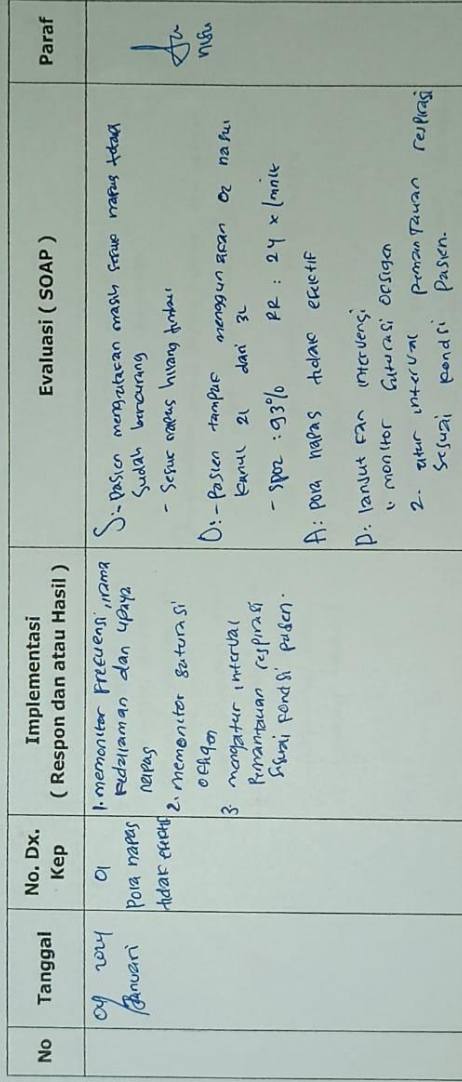 No
Tanggal
No. Dx.
Kep
Implementasi
( Respon dan atau Hasil )
Evaluasi ( SOAP )
Paraf
04 2024
Januari
01
Pola napas
tidak efektif
1. memonitor Frekuensi, irama
kedalaman dan upaya
napas
2. memonitor saturasi
oksigen
3. mengatur interval
Pemantauan respirasi
sesuai kondisi pasien.
S: - Pasien mengatakan masih sesak napas tetapi
sudah berkurang
- Sesak napas hilang timbul
O: - Pasien tampak menggunakan O2 nasal
kanul 2L dari 3L
- SpO2 : 93% RR : 24 x/menit
A: pola napas tidak efektif
P: lanjutkan intervensi
1. monitor saturasi oksigen
2. atur interval pemantauan respirasi
sesuai kondisi pasien.